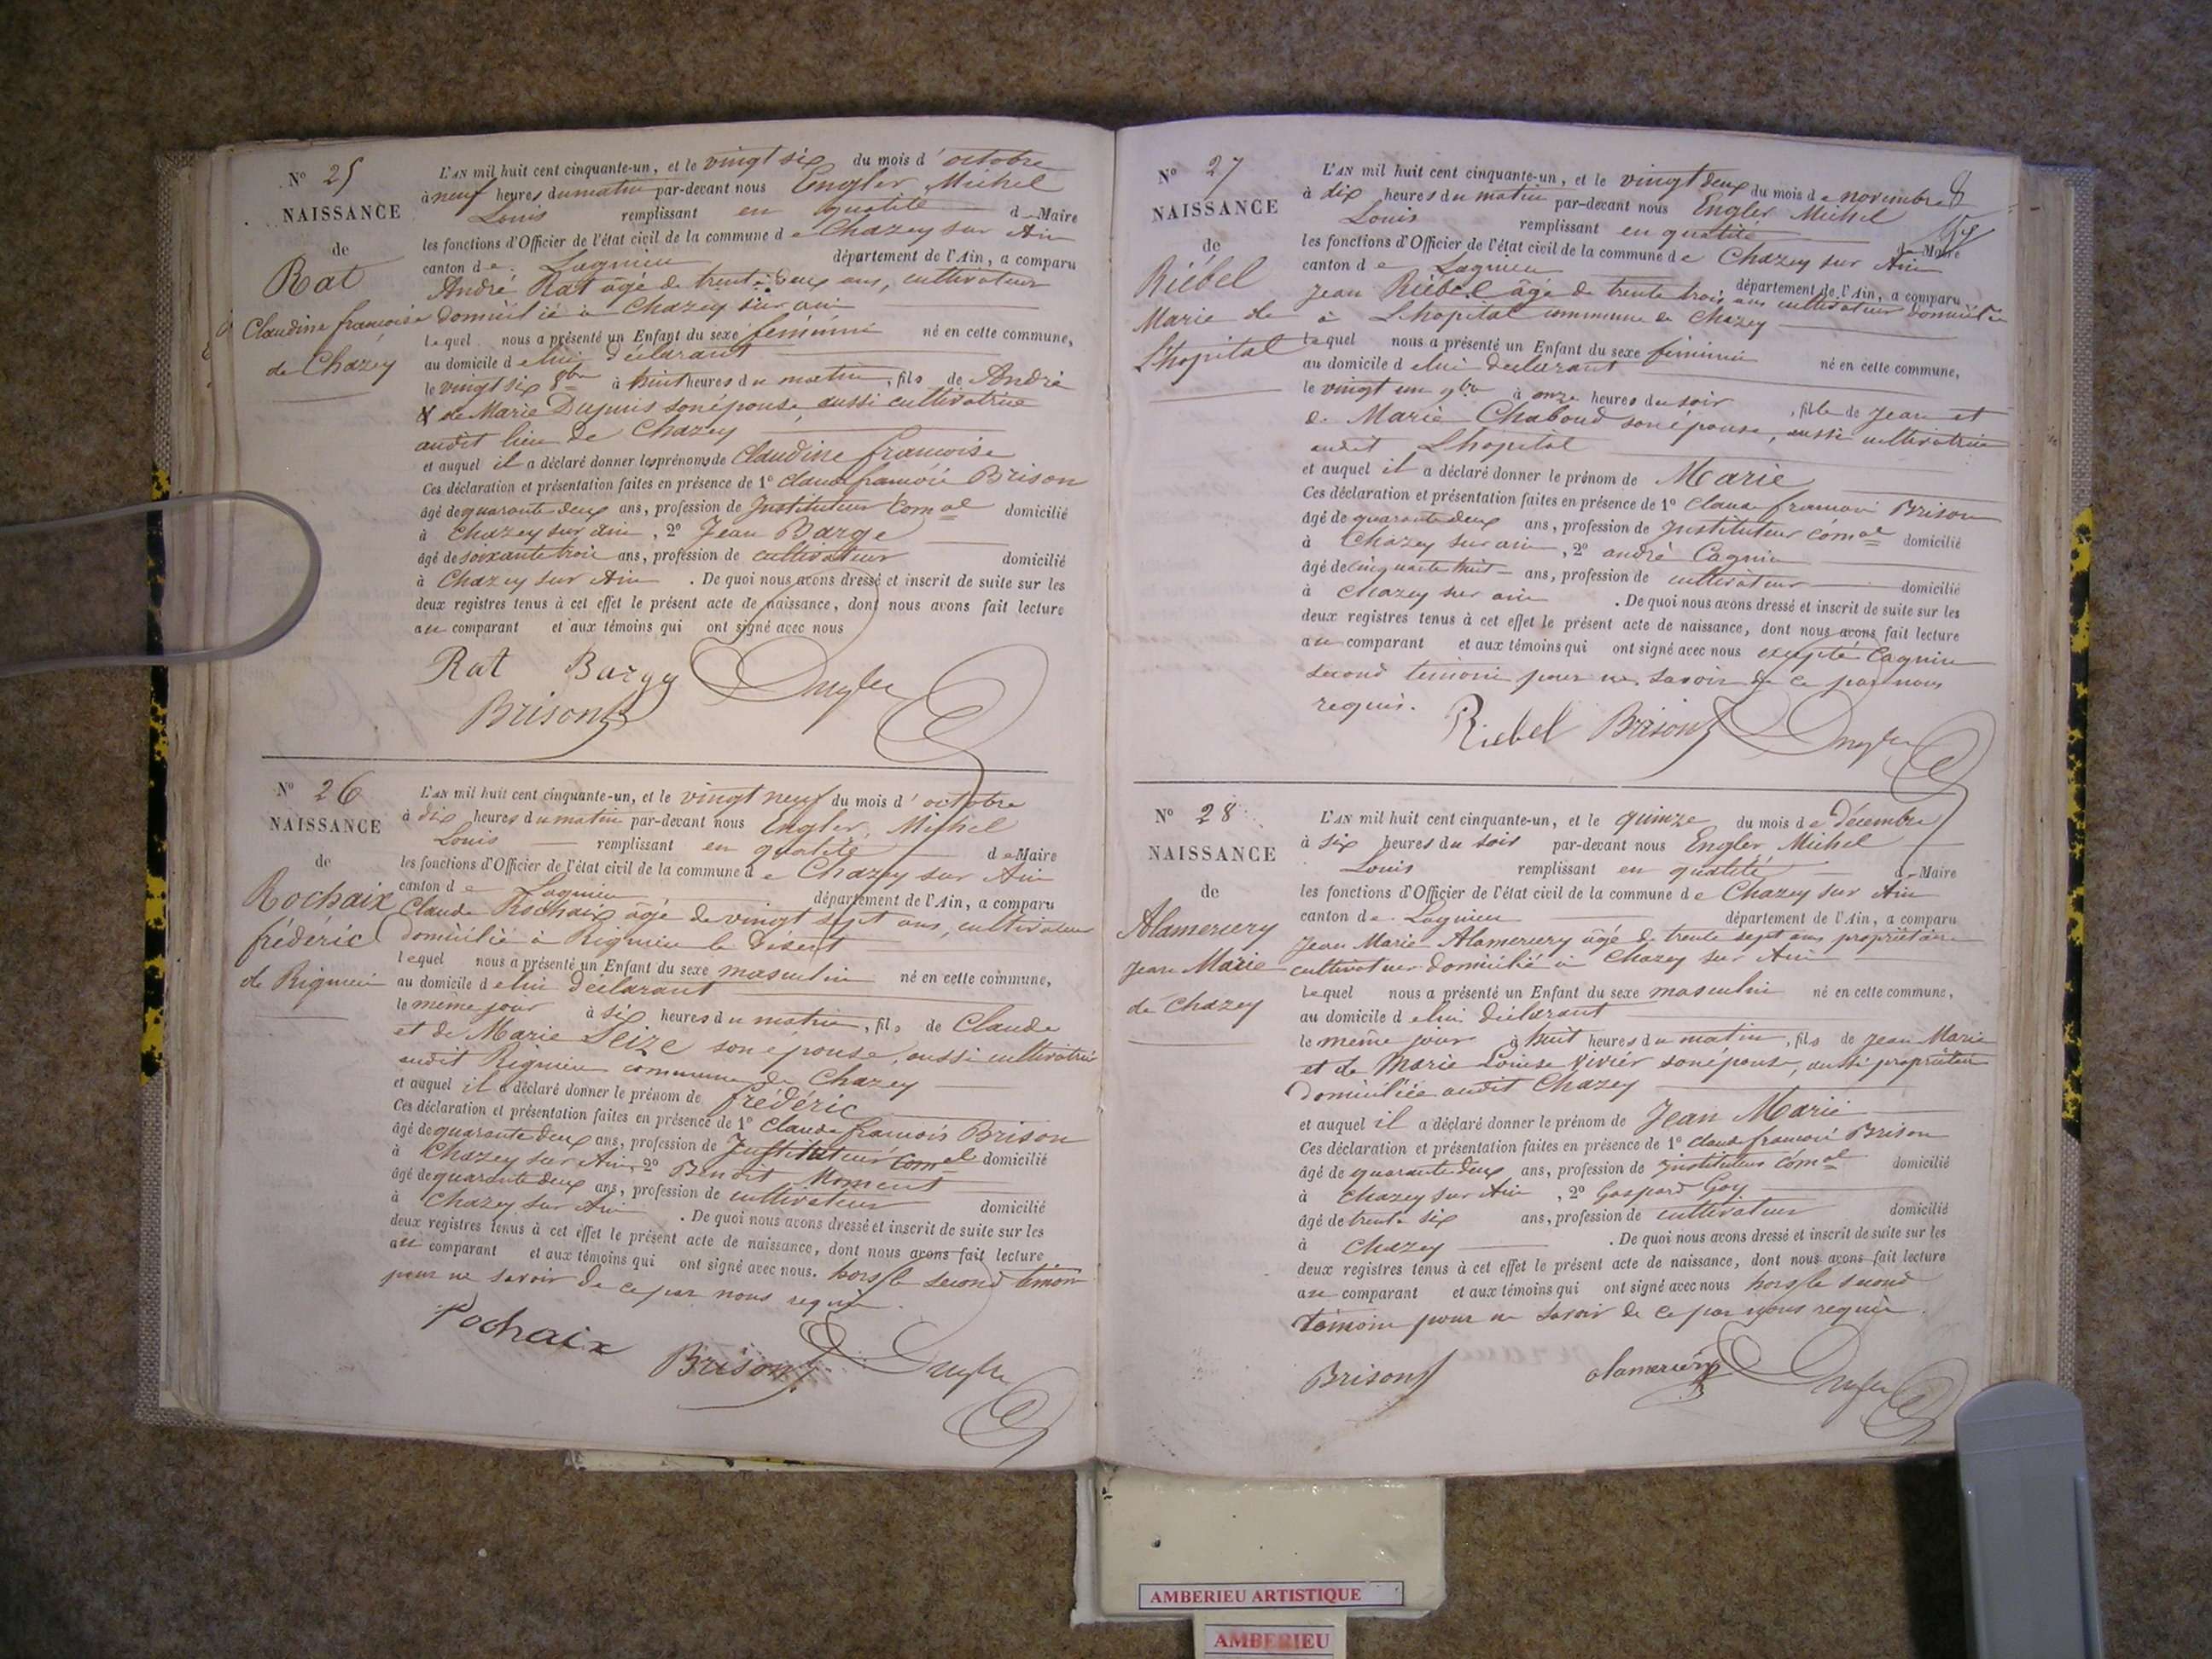 N° 25
NAISSANCE
de
Rat
Claudine françoise
de Chazey
L'AN mil huit cent cinquante-un, et le vingt six du mois d'octobre
à neuf heures du matin par-devant nous Engler Michel
Louis remplissant en qualité de Maire
les fonctions d'Officier de l'état civil de la commune de Chazey sur Ain
canton de Lagnieu département de l'Ain, a comparu
André Rat âgé de trente deux ans, cultivateur
domicilié à Chazey sur ain
lequel nous a présenté un Enfant du sexe féminin né en cette commune,
au domicile de lui déclarant
le vingt six 8bre à huit heures du matin, fils de André
& de Marie Dupuis son épouse, aussi cultivatrice
audit lieu de Chazey
et auquel il a déclaré donner les prénoms de Claudine françoise
Ces déclaration et présentation faites en présence de 1° Claude françois Brison
âgé de quarante deux ans, profession de Instituteur Comal domicilié
à Chazey sur ain, 2° Jean Barge
âgé de soixante trois ans, profession de cultivateur domicilié
à Chazey sur Ain. De quoi nous avons dressé et inscrit de suite sur les
deux registres tenus à cet effet le présent acte de naissance, dont nous avons fait lecture
au comparant et aux témoins qui ont signé avec nous
Rat Engler
Brison
N° 26
NAISSANCE
de
Rochaix
frédéric
de Rignieu
L'AN mil huit cent cinquante-un, et le vingt neuf du mois d'octobre
à dix heures du matin par-devant nous Engler, Michel
Louis remplissant en qualité de Maire
les fonctions d'Officier de l'état civil de la commune de Chazey sur Ain
canton de Lagnieu département de l'Ain, a comparu
Claude Rochaix âgé de vingt sept ans, cultivateur
domicilié à Rignieu le désert
lequel nous a présenté un Enfant du sexe masculin né en cette commune,
au domicile de lui déclarant
le même jour à six heures du matin, fils de Claude
et de Marie Seize son épouse, aussi cultivatrice
audit Rignieu commune de Chazey
et auquel il a déclaré donner le prénom de frédéric
Ces déclaration et présentation faites en présence de 1° Claude françois Brison
âgé de quarante deux ans, profession de Instituteur Comal domicilié
à Chazey sur Ain, 2° Benoit Moment
âgé de quarante deux ans, profession de cultivateur domicilié
à Chazey sur Ain. De quoi nous avons dressé et inscrit de suite sur les
deux registres tenus à cet effet le présent acte de naissance, dont nous avons fait lecture
au comparant et aux témoins qui ont signé avec nous. hors le second témoin
pour ne savoir de ce par nous requis.
Rochaix
Brison Engler
N° 27
NAISSANCE
de
Riébel
Marie de
Lhopital
L'AN mil huit cent cinquante-un, et le vingt deux du mois de novembre
à dix heures du matin par-devant nous Engler Michel
Louis remplissant en qualité de Maire
les fonctions d'Officier de l'état civil de la commune de Chazey sur Ain
canton de Lagnieu département de l'Ain, a comparu
Jean Riébel âgé de trente trois ans cultivateur domicilié
à Lhopital commune de Chazey
lequel nous a présenté un Enfant du sexe féminin né en cette commune,
au domicile de lui déclarant
le vingt un 9bre à onze heures du soir, fille de Jean et
de Marie Chaboud son épouse, aussi cultivatrice
audit Lhopital
et auquel il a déclaré donner le prénom de Marie
Ces déclaration et présentation faites en présence de 1° Claude françois Brison
âgé de quarante deux ans, profession de Instituteur comal domicilié
à Chazey sur ain, 2° andré Cagnin
âgé de cinquante huit ans, profession de cultivateur domicilié
à Chazey sur ain. De quoi nous avons dressé et inscrit de suite sur les
deux registres tenus à cet effet le présent acte de naissance, dont nous avons fait lecture
au comparant et aux témoins qui ont signé avec nous excepté Cagnin
second témoin pour ne savoir de ce par nous
requis.
Riebel Brison Engler
N° 28
NAISSANCE
de
Alamercery
Jean Marie
de Chazey
L'AN mil huit cent cinquante-un, et le quinze du mois de Décembre
à six heures du soir par-devant nous Engler Michel
Louis remplissant en qualité de Maire
les fonctions d'Officier de l'état civil de la commune de Chazey sur Ain
canton de Lagnieu département de l'Ain, a comparu
Jean Marie Alamercery âgé de trente sept ans propriétaire
cultivateur domicilié à Chazey sur Ain
lequel nous a présenté un Enfant du sexe masculin né en cette commune,
au domicile de lui déclarant
le même jour à huit heures du matin, fils de Jean Marie
et de Marie Louise Vivier son épouse, aussi propriétaire
domiciliée audit Chazey
et auquel il a déclaré donner le prénom de Jean Marie
Ces déclaration et présentation faites en présence de 1° Claude françois Brison
âgé de quarante deux ans, profession de Instituteur comal domicilié
à Chazey sur Ain, 2° Gaspard Goy
âgé de trente six ans, profession de cultivateur domicilié
à Chazey. De quoi nous avons dressé et inscrit de suite sur les
deux registres tenus à cet effet le présent acte de naissance, dont nous avons fait lecture
au comparant et aux témoins qui ont signé avec nous hors le second
témoin pour ne savoir de ce par nous requis.
Brison alamercery Engler
AMBERIEU ARTISTIQUE
AMBERIEU